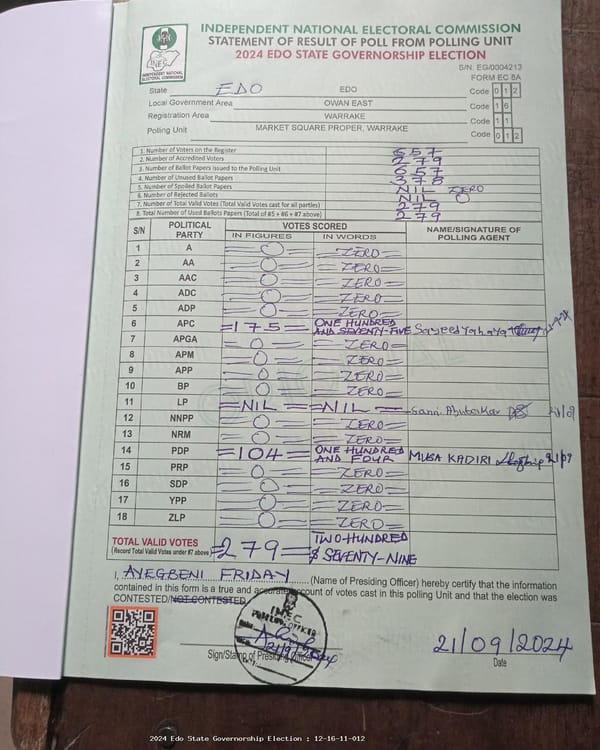 INDEPENDENT NATIONAL ELECTORAL COMMISSION
STATEMENT OF RESULT OF POLL FROM POLLING UNIT
2024 EDO STATE GOVERNORSHIP ELECTION
S/N: EG/0004213
FORM EC 8A
INEC
INDEPENDENT NATIONAL ELECTORAL COMMISSION
State EDO EDO Code 0 1 2
Local Government Area OWAN EAST Code 1 6
Registration Area WARRAKE Code 1 1
Polling Unit MARKET SQUARE PROPER, WARRAKE Code 0 1 2
1. Number of Voters on the Register 657
2. Number of Accredited Voters 279
3. Number of Ballot Papers Issued to the Polling Unit 657
4. Number of Unused Ballot Papers 378
5. Number of Spoiled Ballot Papers NIL ZERO
6. Number of Rejected Ballots NIL 0
7. Number of Total Valid Votes (Total Valid Votes cast for all parties) 279
8. Total Number of Used Ballots Papers (Total of #5 + #6 + #7 above) 279
S/N POLITICAL PARTY VOTES SCORED NAME/SIGNATURE OF POLLING AGENT
IN FIGURES IN WORDS
1 A 0 ZERO
2 AA 0 ZERO
3 AAC 0 ZERO
4 ADC 0 ZERO
5 ADP 0 ZERO
6 APC =175= ONE HUNDRED AND SEVENTY-FIVE Sayeed Yahaya
7 APGA 0 ZERO
8 APM 0 ZERO
9 APP 0 ZERO
10 BP 0 ZERO
11 LP =NIL= =NIL= Sanni Abubakar
12 NNPP 0 ZERO
13 NRM 0 ZERO
14 PDP =104= ONE HUNDRED AND FOUR MUSA KADIRI
15 PRP 0 ZERO
16 SDP 0 ZERO
17 YPP 0 ZERO
18 ZLP 0 ZERO
TOTAL VALID VOTES =279= TWO-HUNDRED
(Record Total Valid Votes under #7 above) & SEVENTY-NINE
I, AYEGBENI FRIDAY (Name of Presiding Officer) hereby certify that the information
contained in this form is a true and accurate account of votes cast in this polling Unit and that the election was
CONTESTED/NOT CONTESTED.
INEC
PRESIDING OFFICER
21/9/2024
Sign/Stamp of Presiding Officer
21/09/2024
Date
2024 Edo State Governorship Election : 12-16-11-012